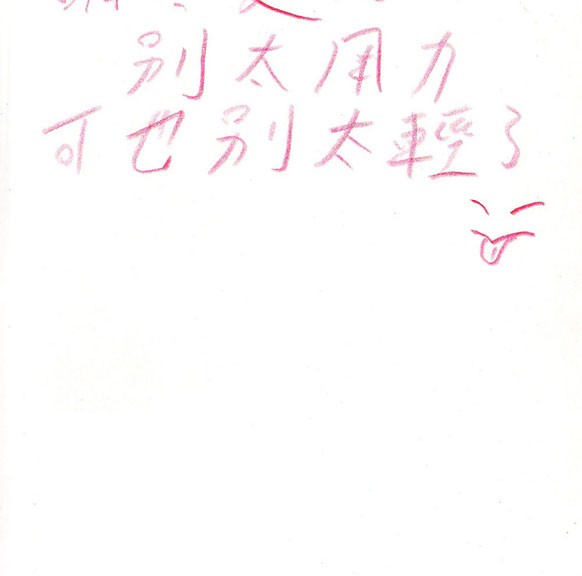 別太用力
可也別太輕了